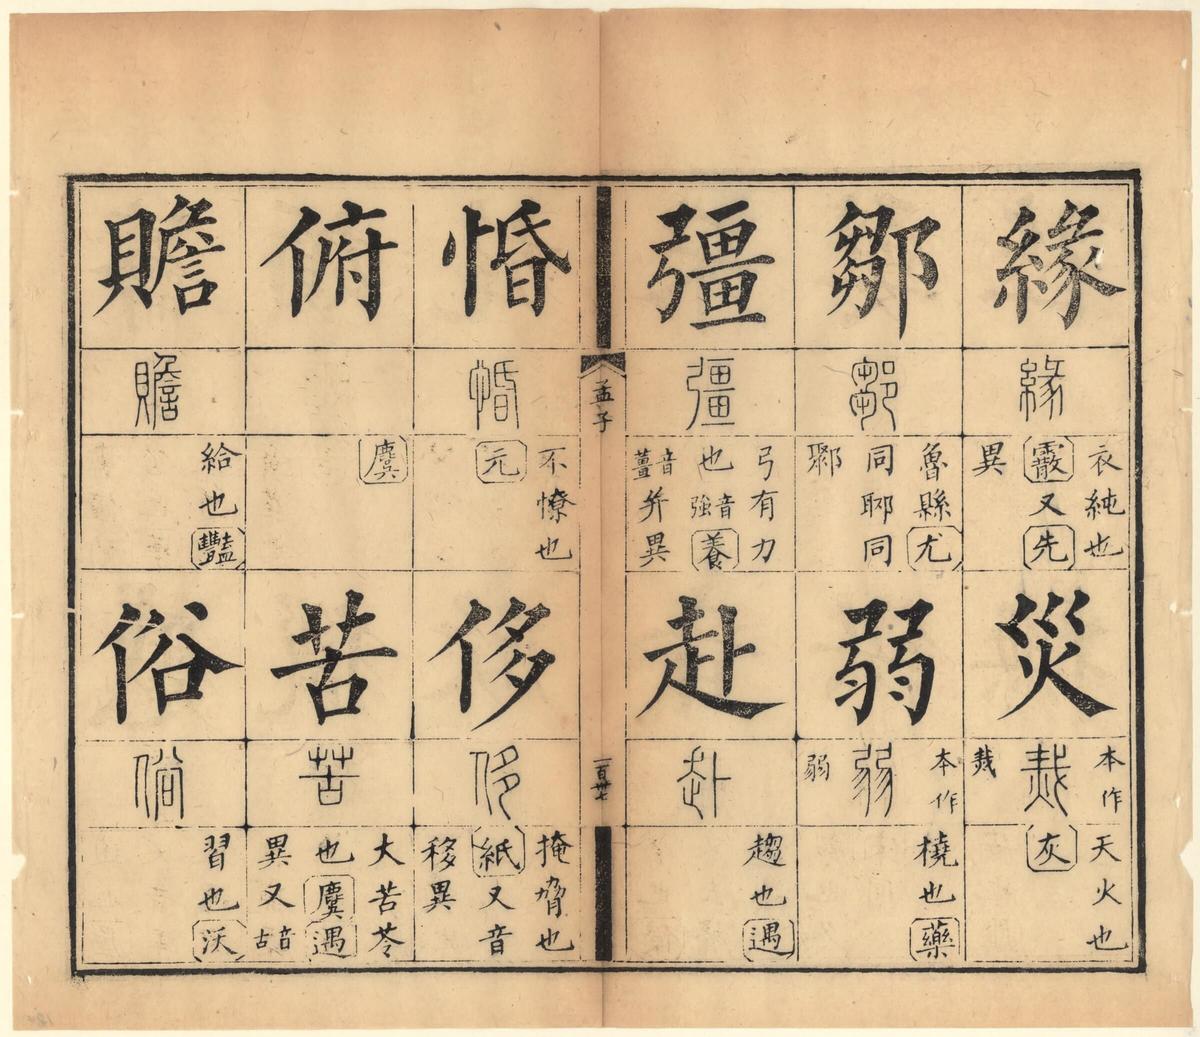 緣
緣
衣純也
霰又先
異
災
本作
烖
烖
天火也
灰
鄒
鄒
魯縣尤
同郰同
鄹
弱
本作
弱
弱
橈也藥
彊
彊
弓有力
也音強養
音薑並異
赴
赴
趨也遇
孟子
一百卅七
惛
惛
不憭也
元
侈
侈
掩脅也
紙又音
移異
俯
麌
苦
苦
大苦苓
也麌遇
異又音古
贍
贍
給也豔
俗
俗
習也沃